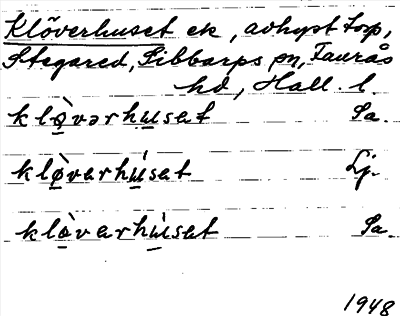 Klöverhuset ek, avhyst torp,
Stegared, Sibbarps sn, Faurås
hd, Hall. l.
klø̀vərhu̇sət Sa.
klø̀vərhu̇sət Lj.
klø̀vərhu̇sət Sa.
1948